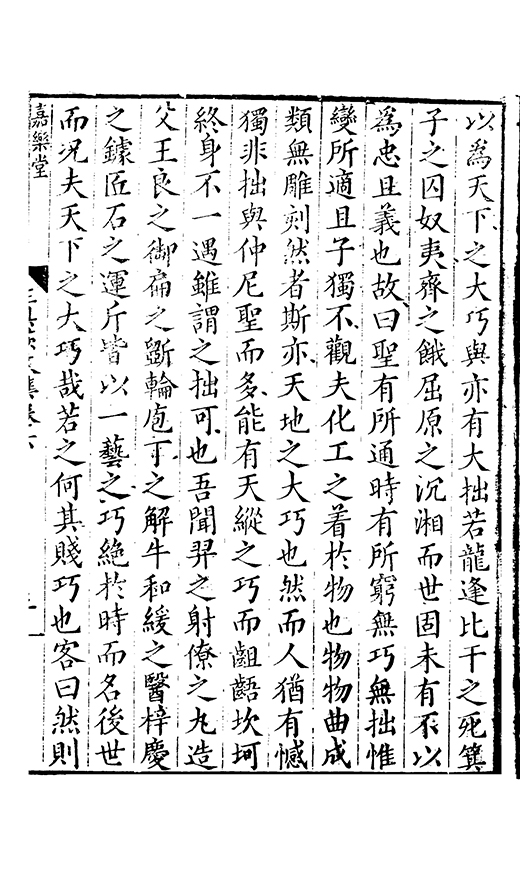 以為天下之大巧與亦有大拙若龍逢比干之死箕
子之囚奴夷齊之餓屈原之沉湘而世固未有不以
為忠且義也故曰聖有所通時有所窮無巧無拙惟
變所適且子獨不觀夫化工之着於物也物物曲成
類無雕刻然者斯亦天地之大巧也然而人猶有憾
獨非拙與仲尼聖而多能有天縱之巧而齟齬坎坷
終身不一遇雖謂之拙可也吾聞羿之射僚之丸造
父王良之御扁之斲輪庖丁之解牛和緩之醫梓慶
之鐻匠石之運斤皆以一藝之巧絕於時而名後世
而况夫天下之大巧哉若之何其賤巧也客曰然則
嘉樂堂
文集卷六